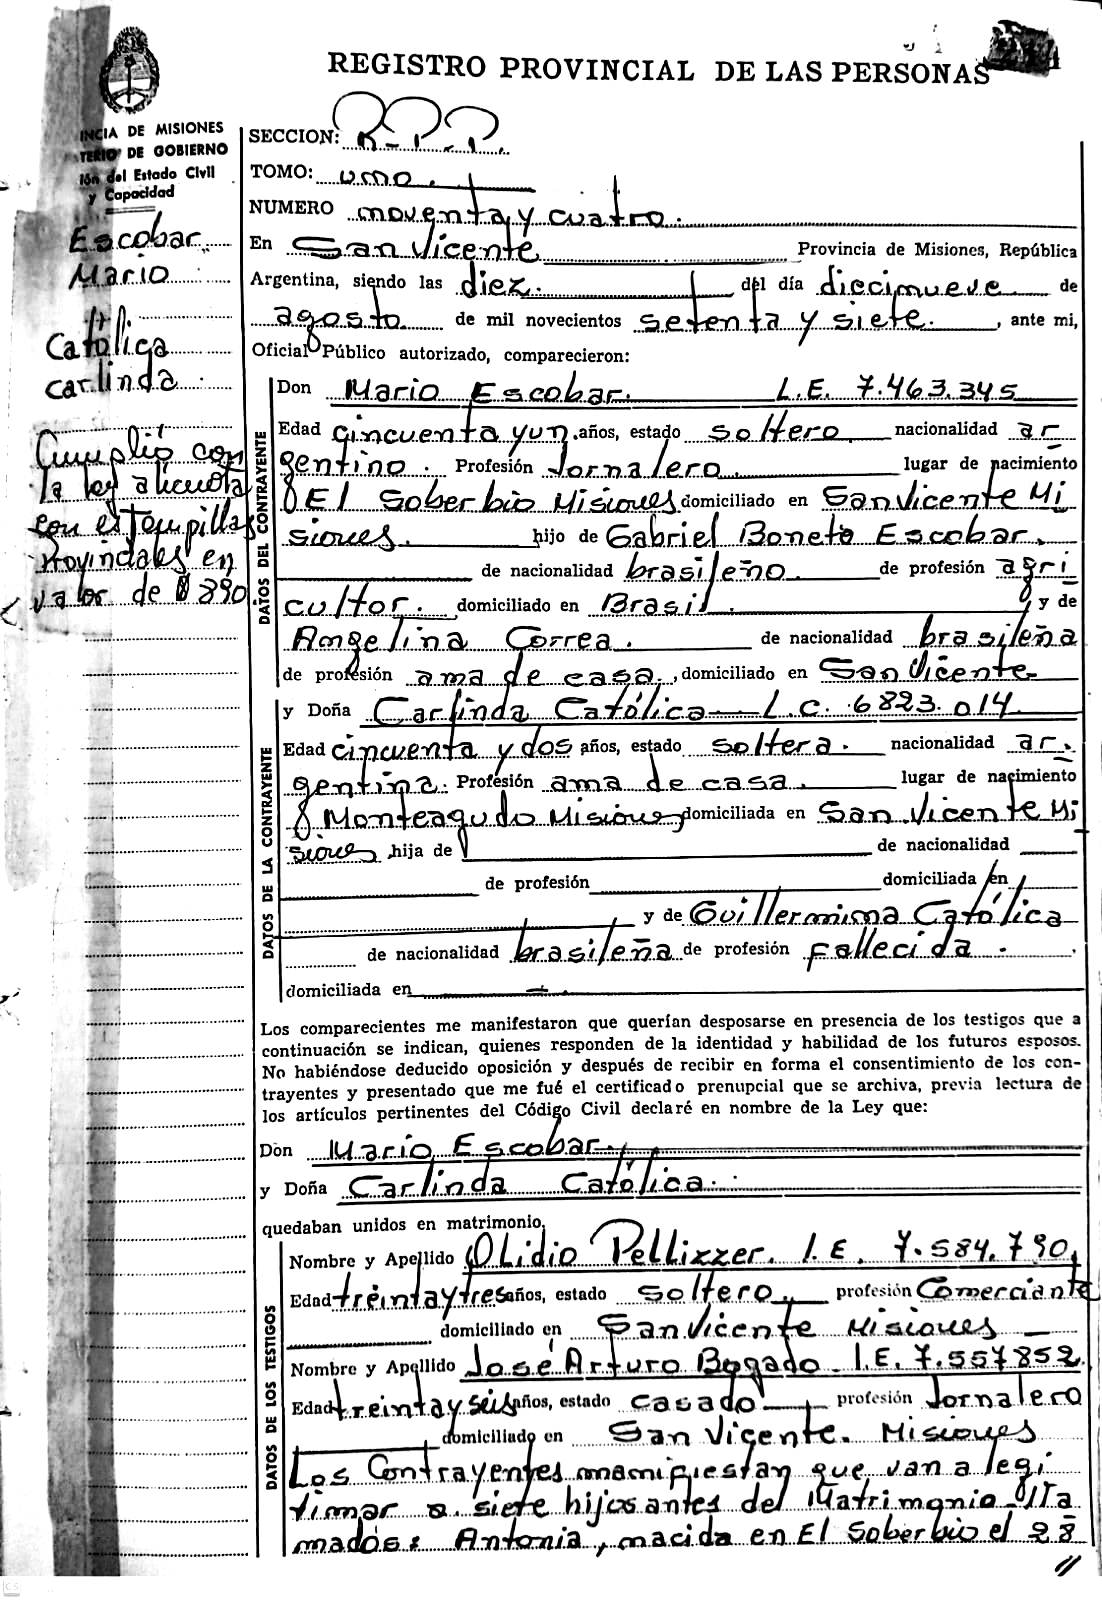 REGISTRO PROVINCIAL DE LAS PERSONAS
INCIA DE MISIONES
TERIO DE GOBIERNO
ión del Estado Civil
y Capacidad
Escobar
Mario
Católica
Carlinda
Cumplió con
la ley alicuota
con estampillas
Provinciales en
valor de $ 890
SECCION: R.P.P.
TOMO: uno.
NUMERO noventa y cuatro.
En San Vicente Provincia de Misiones, República
Argentina, siendo las diez. del día diecinueve de
agosto de mil novecientos setenta y siete. , ante mi,
Oficial Público autorizado, comparecieron:
DATOS DEL CONTRAYENTE
Don Mario Escobar. L.E. 7.463.345
Edad cincuenta y un. años, estado soltero nacionalidad ar
gentino. Profesión Jornalero lugar de nacimiento
El Soberbio Misiones domiciliado en San Vicente Mi
siones. hijo de Gabriel Boneto Escobar.
de nacionalidad brasileño de profesión agri
cultor. domiciliado en Brasil. y de
Angelina Correa. de nacionalidad brasileña
de profesión ama de casa. , domiciliado en San Vicente
DATOS DE LA CONTRAYENTE
y Doña Carlinda Católica L.C. 6823.014
Edad cincuenta y dos años, estado soltera. nacionalidad ar.
gentina. Profesión ama de casa. lugar de nacimiento
Monteagudo Misiones domiciliada en San Vicente Mi
siones hija de de nacionalidad
de profesión domiciliada en
y de Guillermina Católica
de nacionalidad brasileña de profesión fallecida.
domiciliada en
Los comparecientes me manifestaron que querían desposarse en presencia de los testigos que a
continuación se indican, quienes responden de la identidad y habilidad de los futuros esposos.
No habiéndose deducido oposición y después de recibir en forma el consentimiento de los con-
trayentes y presentado que me fué el certificado prenupcial que se archiva, previa lectura de
los artículos pertinentes del Código Civil declaré en nombre de la Ley que:
Don Mario Escobar.
y Doña Carlinda Católica.
quedaban unidos en matrimonio.
DATOS DE LOS TESTIGOS
Nombre y Apellido Olidio Pellizzer. I.E. 7.584.790
Edad treinta y tres años, estado soltero profesión Comerciante
domiciliado en San Vicente Misiones
Nombre y Apellido José Arturo Bogado I.E. 7.557852
Edad treinta y seis años, estado casado profesión Jornalero
domiciliado en San Vicente. Misiones
Los Contrayentes manifiestan que van a legi
timar a siete hijos antes del Matrimonio lla
mados: Antonia, nacida en El Soberbio el 28
//
CS